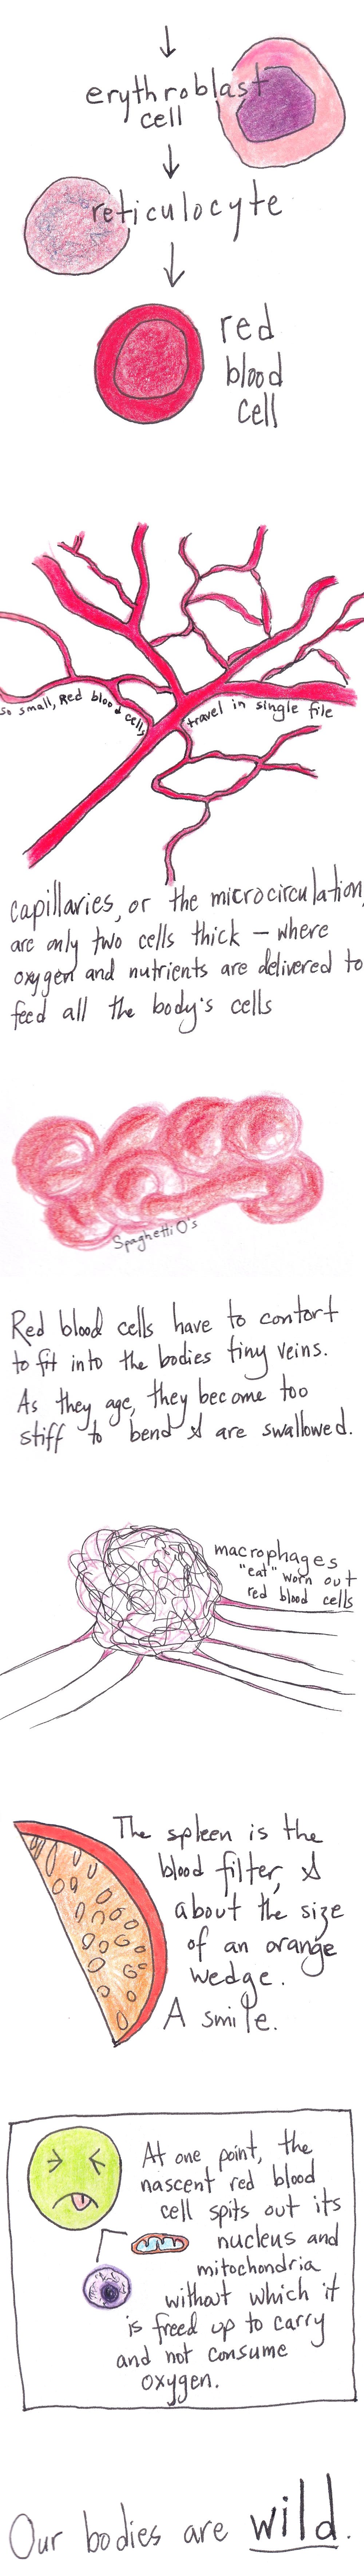 erythroblast
cell
reticulocyte
red
blood
cell
so small, Red blood cells
travel in single file
capillaries, or the microcirculation,
are only two cells thick — where
oxygen and nutrients are delivered to
feed all the body's cells
Spaghetti O's
Red blood cells have to contort
to fit into the bodies tiny veins.
As they age, they become too
stiff to bend & are swallowed.
macrophages
"eat" worn out
red blood cells
The spleen is the
blood filter, &
about the size
of an orange
wedge.
A smile.
At one point, the
nascent red blood
cell spits out its
nucleus and
mitochondria
without which it
is freed up to carry
and not consume
oxygen.
Our bodies are wild.